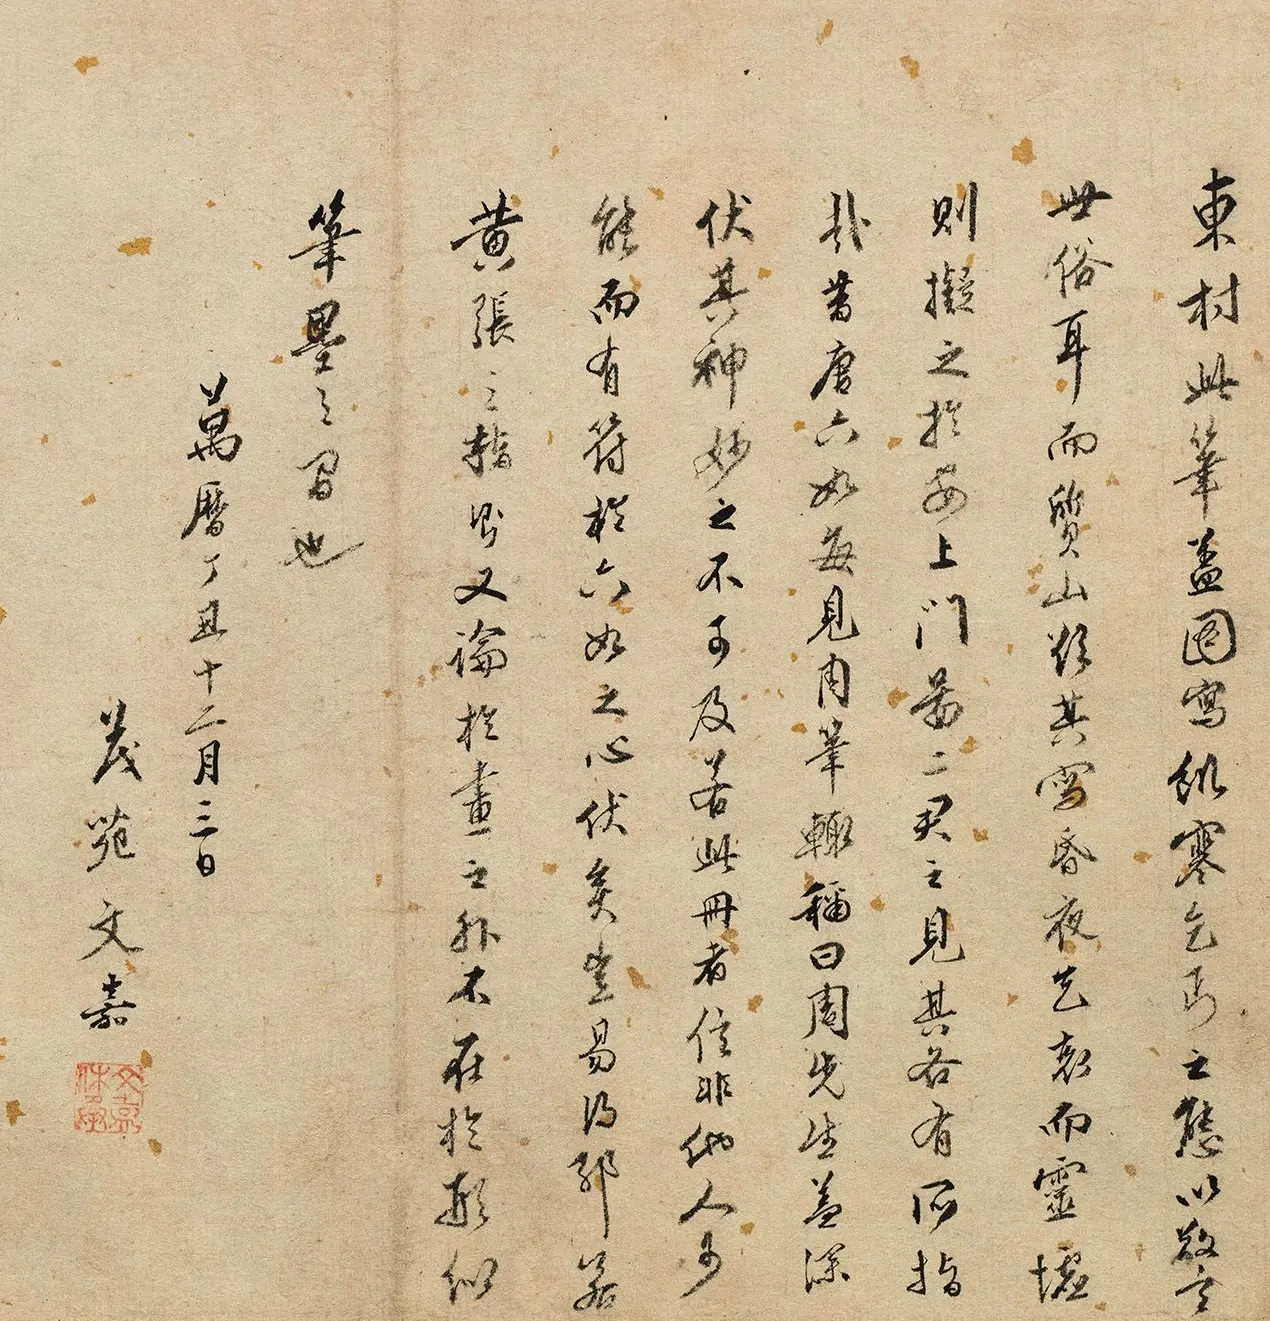 東村此筆盖圖寫飢寒乞丐之態以警
世俗耳而質山疑其寫昏夜乞哀而靈墟
則擬之於安上門啚二君之見其各有所指
哉昔唐六如每見周筆輙稱曰周先生盖深
伏其神妙之不可及若此冊者信非他人可
能而有符於六如之心伏矣豈易得耶若
黄張二指則又論於畫之外不在於形似
筆墨之間也
萬曆丁丑十二月三日
茂苑文嘉